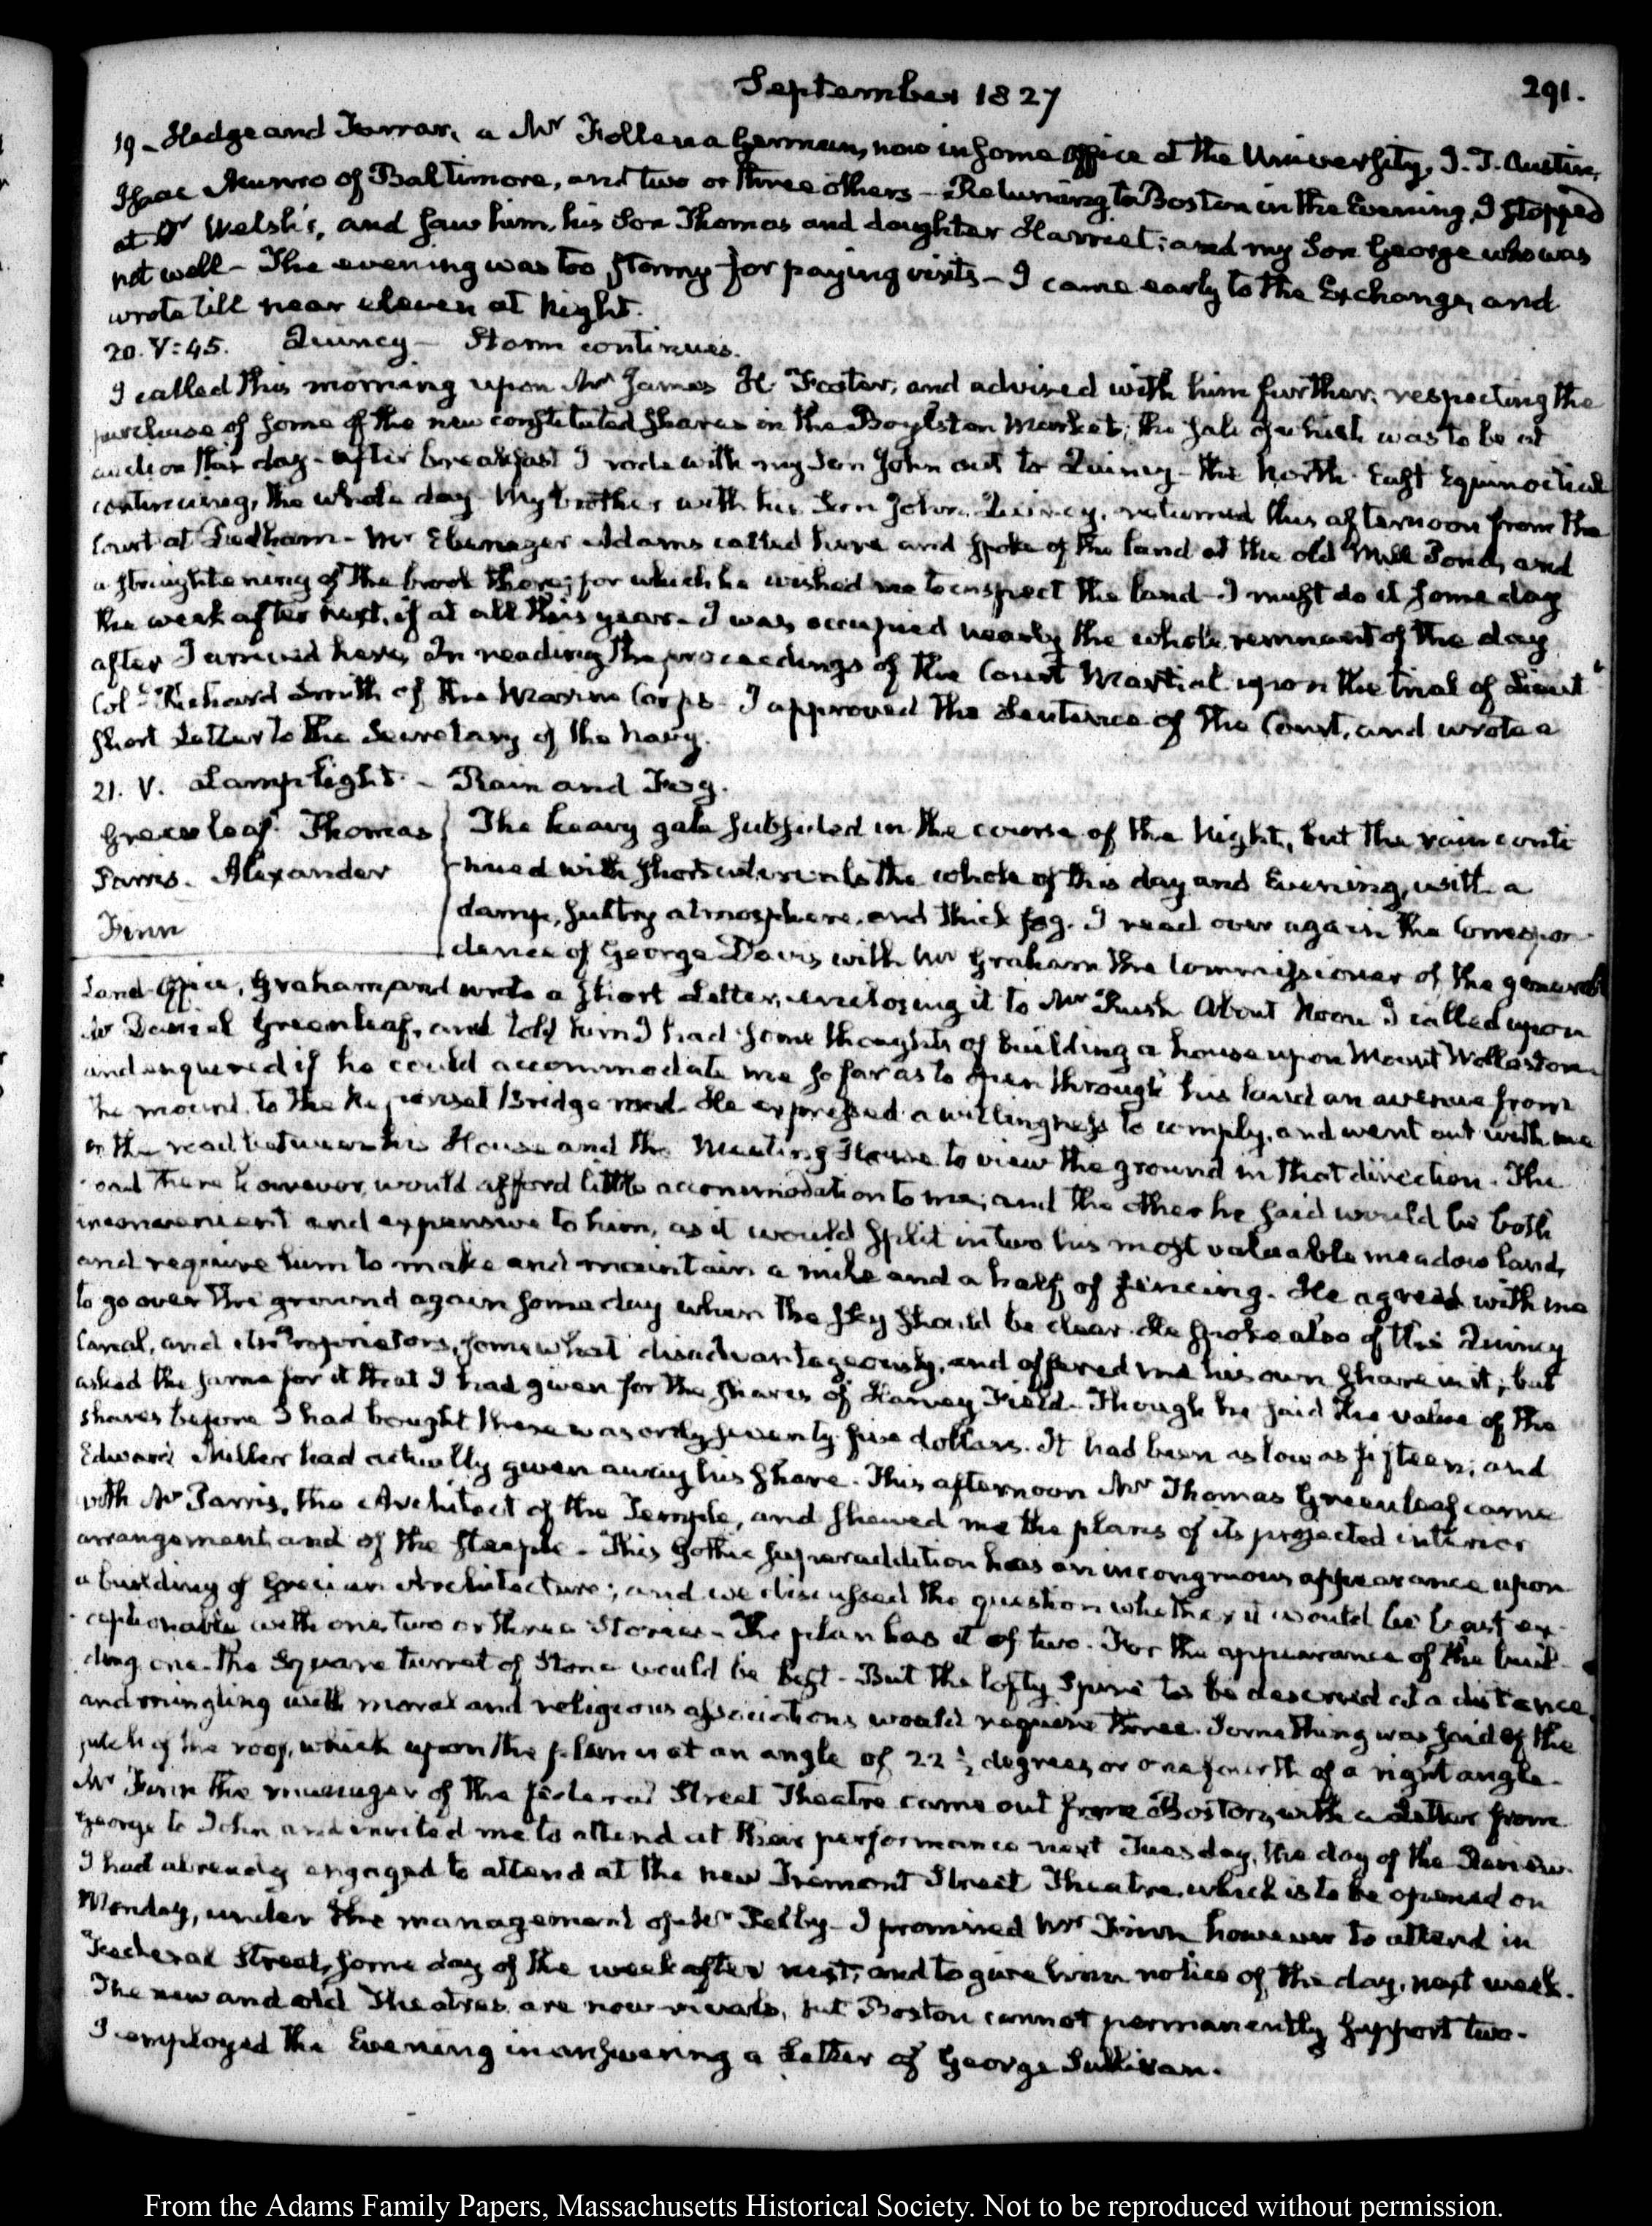 September 1827
291.
19 - Hedge and Farrar, a Mr Follen a German, now in some office at the University, J. T. Austin,
Isaac Munro of Baltimore, and two or three others - Returning to Boston in the Evening, I stopped
at Dr Welsh's, and saw him, his Son Thomas and daughter Harriet; and my Son George who was
not well - The evening was too stormy for paying visits - I came early to the Exchange, and
wrote till near eleven at Night.
20. V:45. Quincy - Storm continues.
I called this morning upon Mr James H. Foster, and advised with him further, respecting the
purchase of some of the new constituted shares in the Boylston Market; the sale of which was to be at
auction this day - after breakfast I rode with my Son John out to Quincy - the North-East Equinoctial
continuing, the whole day - My brother with his Son John Quincy, returned this afternoon from the
Court at Dedham - Mr Ebenezer Adams called here and spoke of the land at the old Mill Pond, and
a straightening of the brook there; for which he wished me to inspect the land - I must do it some day
the week after next, if at all this year - I was occupied nearly the whole remnant of the day
after I arrived here, in reading the proceedings of the Court Martial upon the trial of Lieut
Col Richard Smith of the Marine Corps - I approved the Sentence of the Court, and wrote a
short Letter to the Secretary of the Navy.
21. V. Lamp light - Rain and Fog.
Greenleaf. Thomas
Parris. Alexander
Finn
The heavy gale subsided in the course of the Night, but the rain conti
nued with short intervals the whole of this day and Evening, with a
damp, sultry atmosphere, and thick fog. I read over again the Correspon-
dence of George Davis with Mr Graham the Commissioner of the general
Land Office, Graham, and wrote a short Letter, enclosing it to Mr Rush. About Noon I called upon
Mr Daniel Greenleaf, and told him I had some thoughts of building a house upon Mount Wollaston
and enquired if he could accommodate me so far as to open through his land an avenue from
the mount to the Bridge road. He expressed a willingness to comply, and went out with me
on the road between his House and the Meeting House to view the ground in that direction. The
road there however, would afford little accommodation to me; and the other he said would be both
inconvenient and expensive to him, as it would split in two his most valuable meadow land,
and require him to make and maintain a mile and a half of fencing. He agreed with me
to go over the ground again some day when the sky should be clear. He spoke also of the Quincy
Canal, and its Proprietors, somewhat disadvantageously, and offered me his own share in it; but
asked the same for it that I had given for the shares of Harvey Field - Though he said the value of the
shares before I had bought these was only seventy-five dollars. It had been as low as fifteen; and
Edward Miller had actually given away his share. This afternoon Mr Thomas Greenleaf came
with Mr Parris, the Architect of the Temple, and shewed me the plans of its projected interior
arrangement and of the steeple - This Gothic superaddition has an incongruous appearance upon
a building of Grecian Architecture; and we discussed the question whether it would be least ex-
ceptionable with one, two or three Stories - The plan has it of two. For the appearance of the buil-
ding one - the Square turret of Stone would be best - But the lofty Spire to be descried at a distance,
and mingling with moral and religious associations would require three. Something was said of the
pitch of the roof, which upon the plan is at an angle of 22 1/2 degrees, or one fourth of a right angle -
Mr Finn the manager of the federal Street Theatre came out from Boston, with a Letter from
George to John and invited me to attend at their performance next Tuesday, the day of the Review.
I had already engaged to attend at the new Tremont Street Theatre, which is to be opened on
Monday, under the management of Mr Pelby - I promised Mr Finn however to attend in
Federal Street, some day of the week after next; and to give him notice of the day, next week.
The new and old Theatres are now rivals, but Boston cannot permanently support two -
I employed the Evening in answering a Letter of George Sullivan.
From the Adams Family Papers, Massachusetts Historical Society. Not to be reproduced without permission.